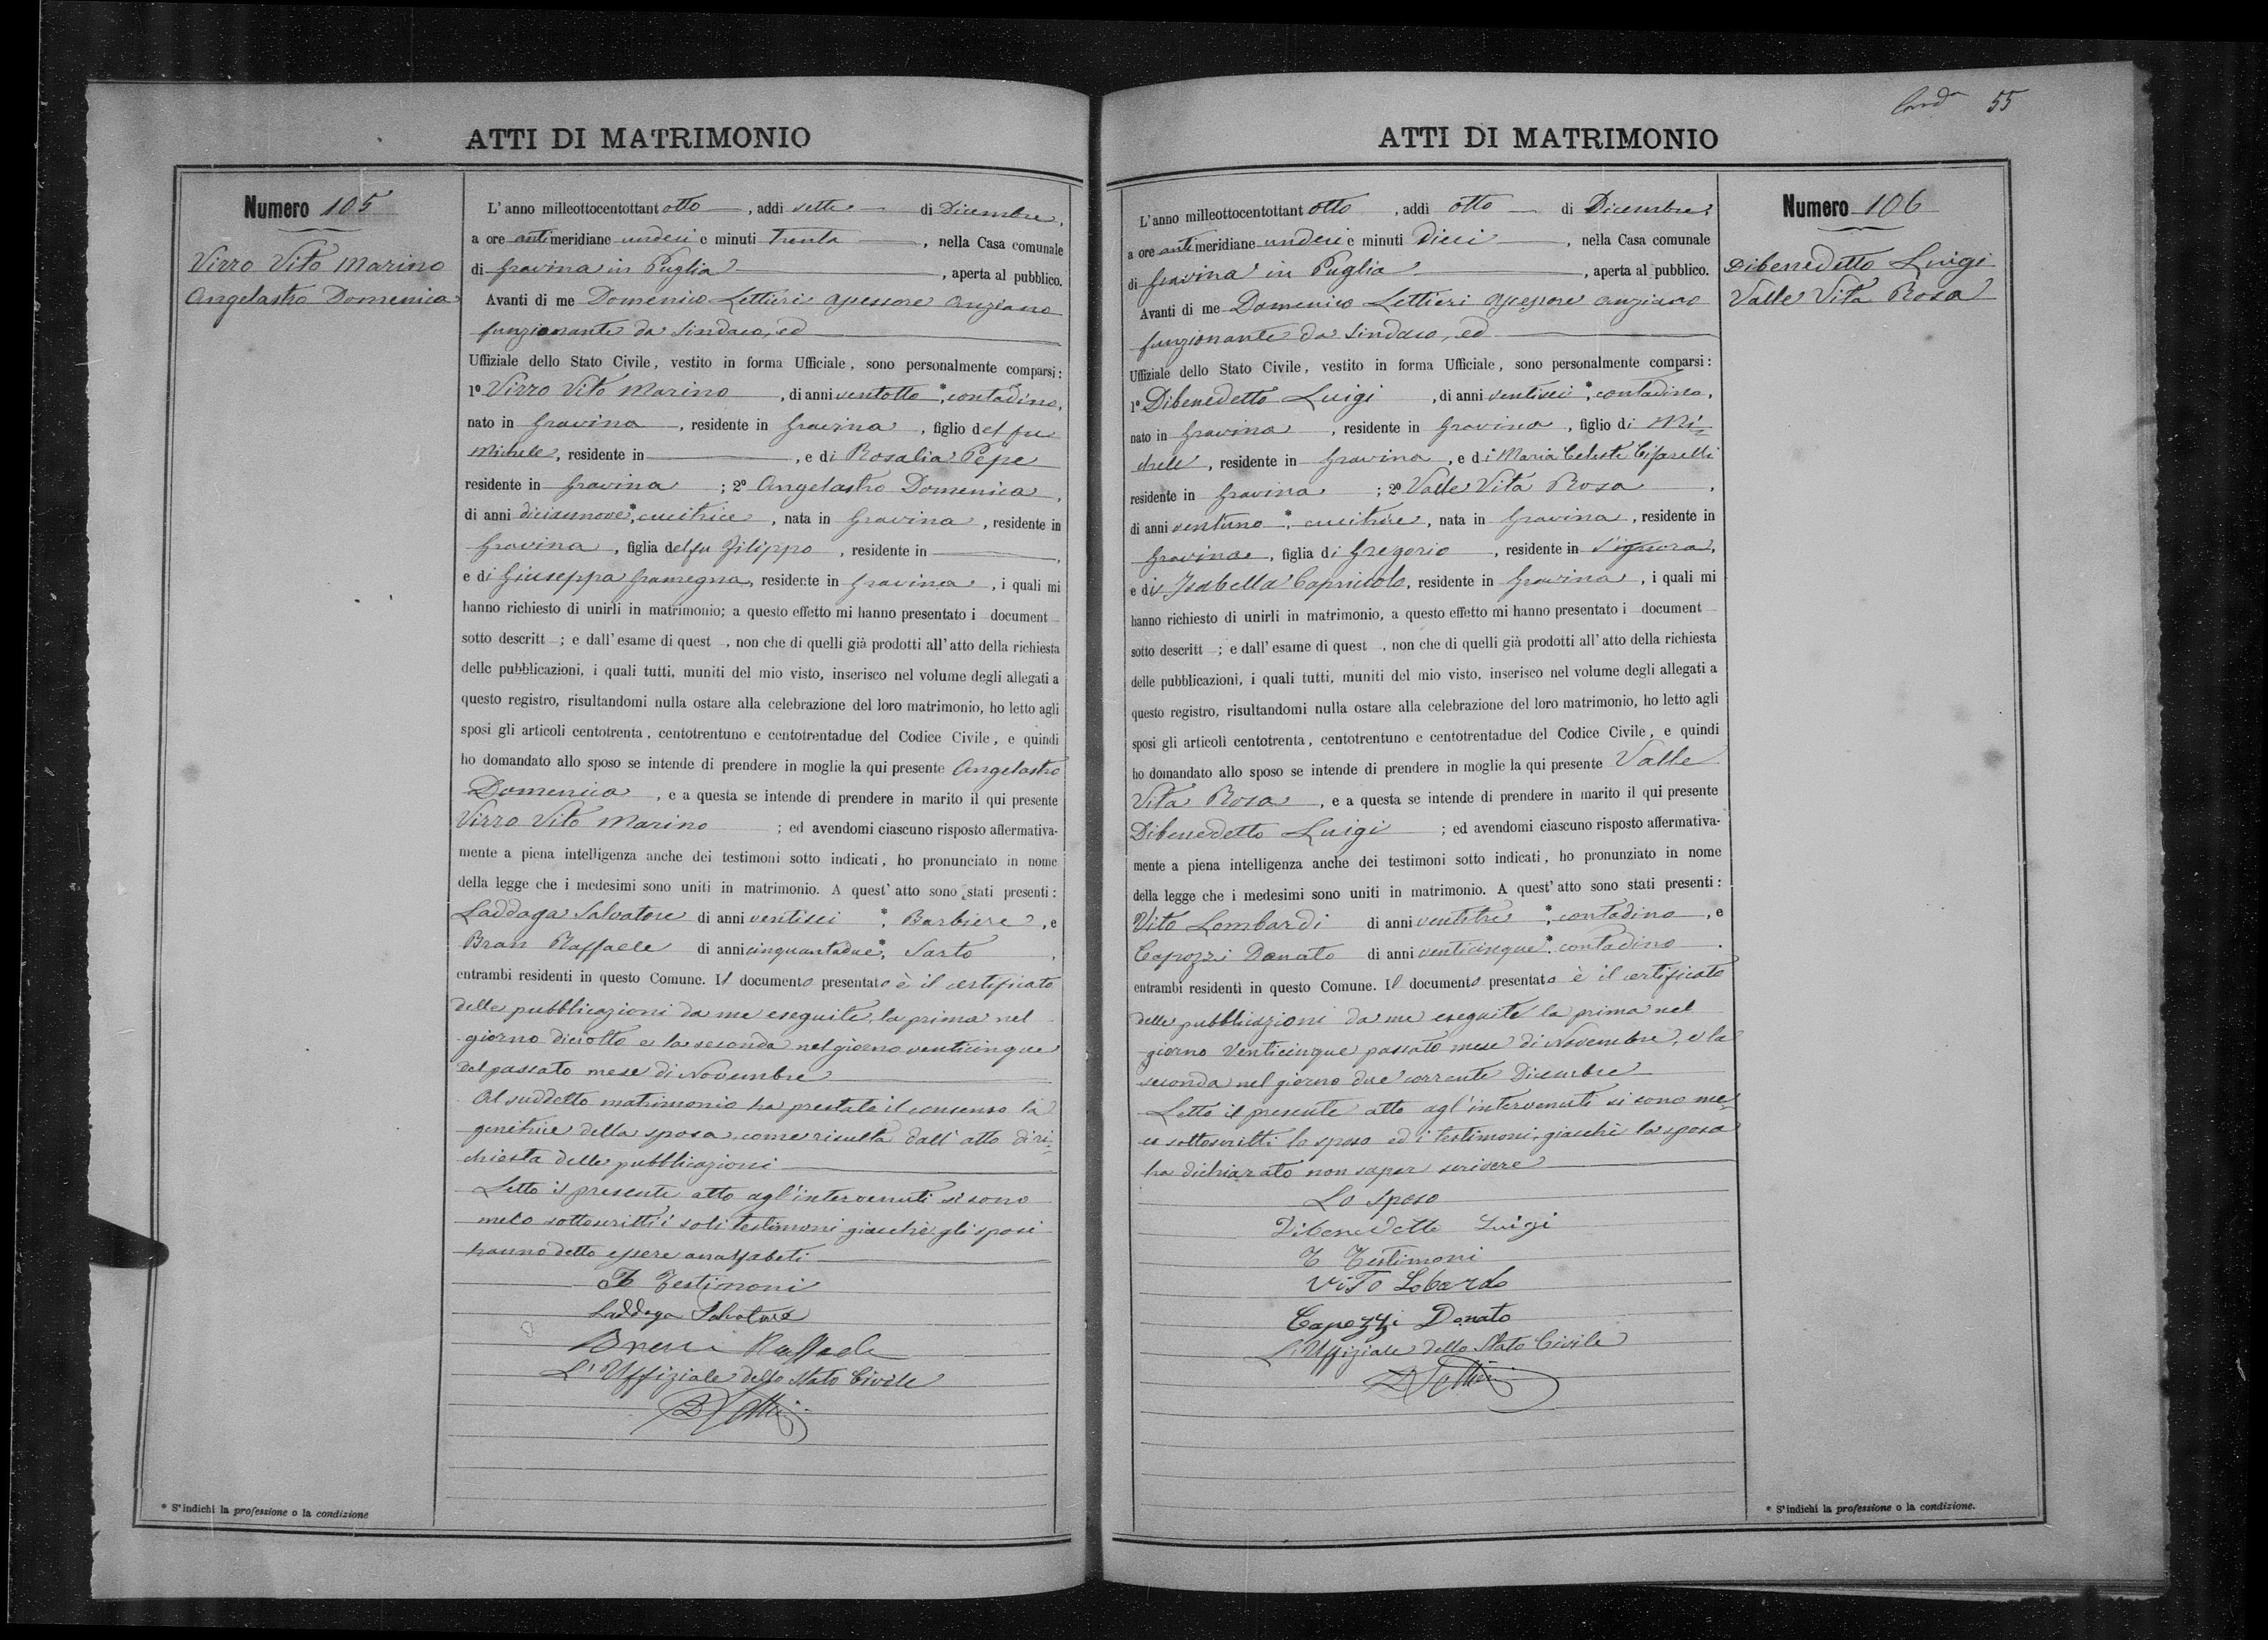 ATTI DI MATRIMONIO
Numero 105
Virro Vito Marino
Angelastro Domenica
L'anno milleottocentottant otto, addi sette di Dicembre,
a ore antimeridiane undeci e minuti trenta, nella Casa comunale
di Gravina in Puglia, aperta al pubblico.
Avanti di me Domenico Lettieri assessore anziano
funzionante da Sindaco, ed
Uffiziale dello Stato Civile, vestito in forma Ufficiale, sono personalmente comparsi:
1º Virro Vito Marino, di anni ventotto*, contadino,
nato in Gravina, residente in Gravina, figlio del fu
Michele, residente in , e di Rosalia Pepe
residente in Gravina ; 2º Angelastro Domenica,
di anni diciannove*, cucitrice, nata in Gravina, residente in
Gravina, figlia del fu Filippo, residente in ,
e di Giuseppa Gramegna, residente in Gravina, i quali mi
hanno richiesto di unirli in matrimonio; a questo effetto mi hanno presentato i document
sotto descritt ; e dall'esame di quest , non che di quelli già prodotti all'atto della richiesta
delle pubblicazioni, i quali tutti, muniti del mio visto, inserisco nel volume degli allegati a
questo registro, risultandomi nulla ostare alla celebrazione del loro matrimonio, ho letto agli
sposi gli articoli centotrenta, centotrentuno e centotrentadue del Codice Civile, e quindi
ho domandato allo sposo se intende di prendere in moglie la qui presente Angelastro
Domenica, e a questa se intende di prendere in marito il qui presente
Virro Vito Marino ; ed avendomi ciascuno risposto affermativa-
mente a piena intelligenza anche dei testimoni sotto indicati, ho pronunciato in nome
della legge che i medesimi sono uniti in matrimonio. A quest'atto sono stati presenti:
Laddaga Salvatore di anni ventisei *, Barbiere, e
Bran Raffaele di anni cinquantadue*, Sarto,
entrambi residenti in questo Comune. Il documento presentato è il certificato
delle pubblicazioni da me eseguite, la prima nel
giorno diciotto e la seconda nel giorno venticinque
del passato mese di Novembre
Al suddetto matrimonio ha prestato il consenso la
genitrice della sposa, come risulta dall'atto di ri=
chiesta delle pubblicazioni
Letto il presente atto agl'intervenuti si sono
meco sottoscritti i soli testimoni giacchè gli sposi
hanno detto essere analfabeti
I Testimoni
Laddaga Salvatore
Raffaele
L'Uffiziale dello Stato Civile
* S'indichi la professione o la condizione
55
ATTI DI MATRIMONIO
Numero 106
Dibenedetto Luigi
Valle Vita Rosa
L'anno milleottocentottant otto, addi otto di Dicembre,
a ore antimeridiane undeci e minuti Dieci, nella Casa comunale
di Gravina in Puglia, aperta al pubblico.
Avanti di me Domenico Lettieri assessore anziano
funzionante da Sindaco, ed
Uffiziale dello Stato Civile, vestito in forma Ufficiale, sono personalmente comparsi:
1º Dibenedetto Luigi, di anni ventisei*, contadino,
nato in Gravina, residente in Gravina, figlio di Mi=
chele, residente in Gravina, e di Maria Celeste Cifarelli
residente in Gravina ; 2º Valle Vita Rosa,
di anni ventuno*, cucitrice, nata in Gravina, residente in
Gravina, figlia di Gregorio, residente in s'ignora,
e di Isabella Capnicolo, residente in Gravina, i quali mi
hanno richiesto di unirli in matrimonio, a questo effetto mi hanno presentato i document
sotto descritt ; e dall'esame di quest , non che di quelli già prodotti all'atto della richiesta
delle pubblicazioni, i quali tutti, muniti del mio visto, inserisco nel volume degli allegati a
questo registro, risultandomi nulla ostare alla celebrazione del loro matrimonio, ho letto agli
sposi gli articoli centotrenta, centotrentuno e centotrentadue del Codice Civile, e quindi
ho domandato allo sposo se intende di prendere in moglie la qui presente Valle
Vita Rosa, e a questa se intende di prendere in marito il qui presente
Dibenedetto Luigi ; ed avendomi ciascuno risposto affermativa-
mente a piena intelligenza anche dei testimoni sotto indicati, ho pronunziato in nome
della legge che i medesimi sono uniti in matrimonio. A quest'atto sono stati presenti:
Vito Lombardi di anni ventitre *, contadino, e
Capozzi Donato di anni venticinque*, contadino.
entrambi residenti in questo Comune. Il documento presentato è il certificato
delle pubblicazioni da me eseguite la prima nel
giorno venticinque passato mese di Novembre, e la
seconda nel giorno due corrente Dicembre
Letto il presente atto agl'intervenuti si sono me=
co sottoscritti lo sposo ed i testimoni, giacchè la sposa
ha dichiarato non saper scrivere
Lo Sposo
Dibenedetto Luigi
I Testimoni
Vito Lobardo
Capozzi Donato
L'Uffiziale dello Stato Civile
D Lettieri
* S'indichi la professione o la condizione.